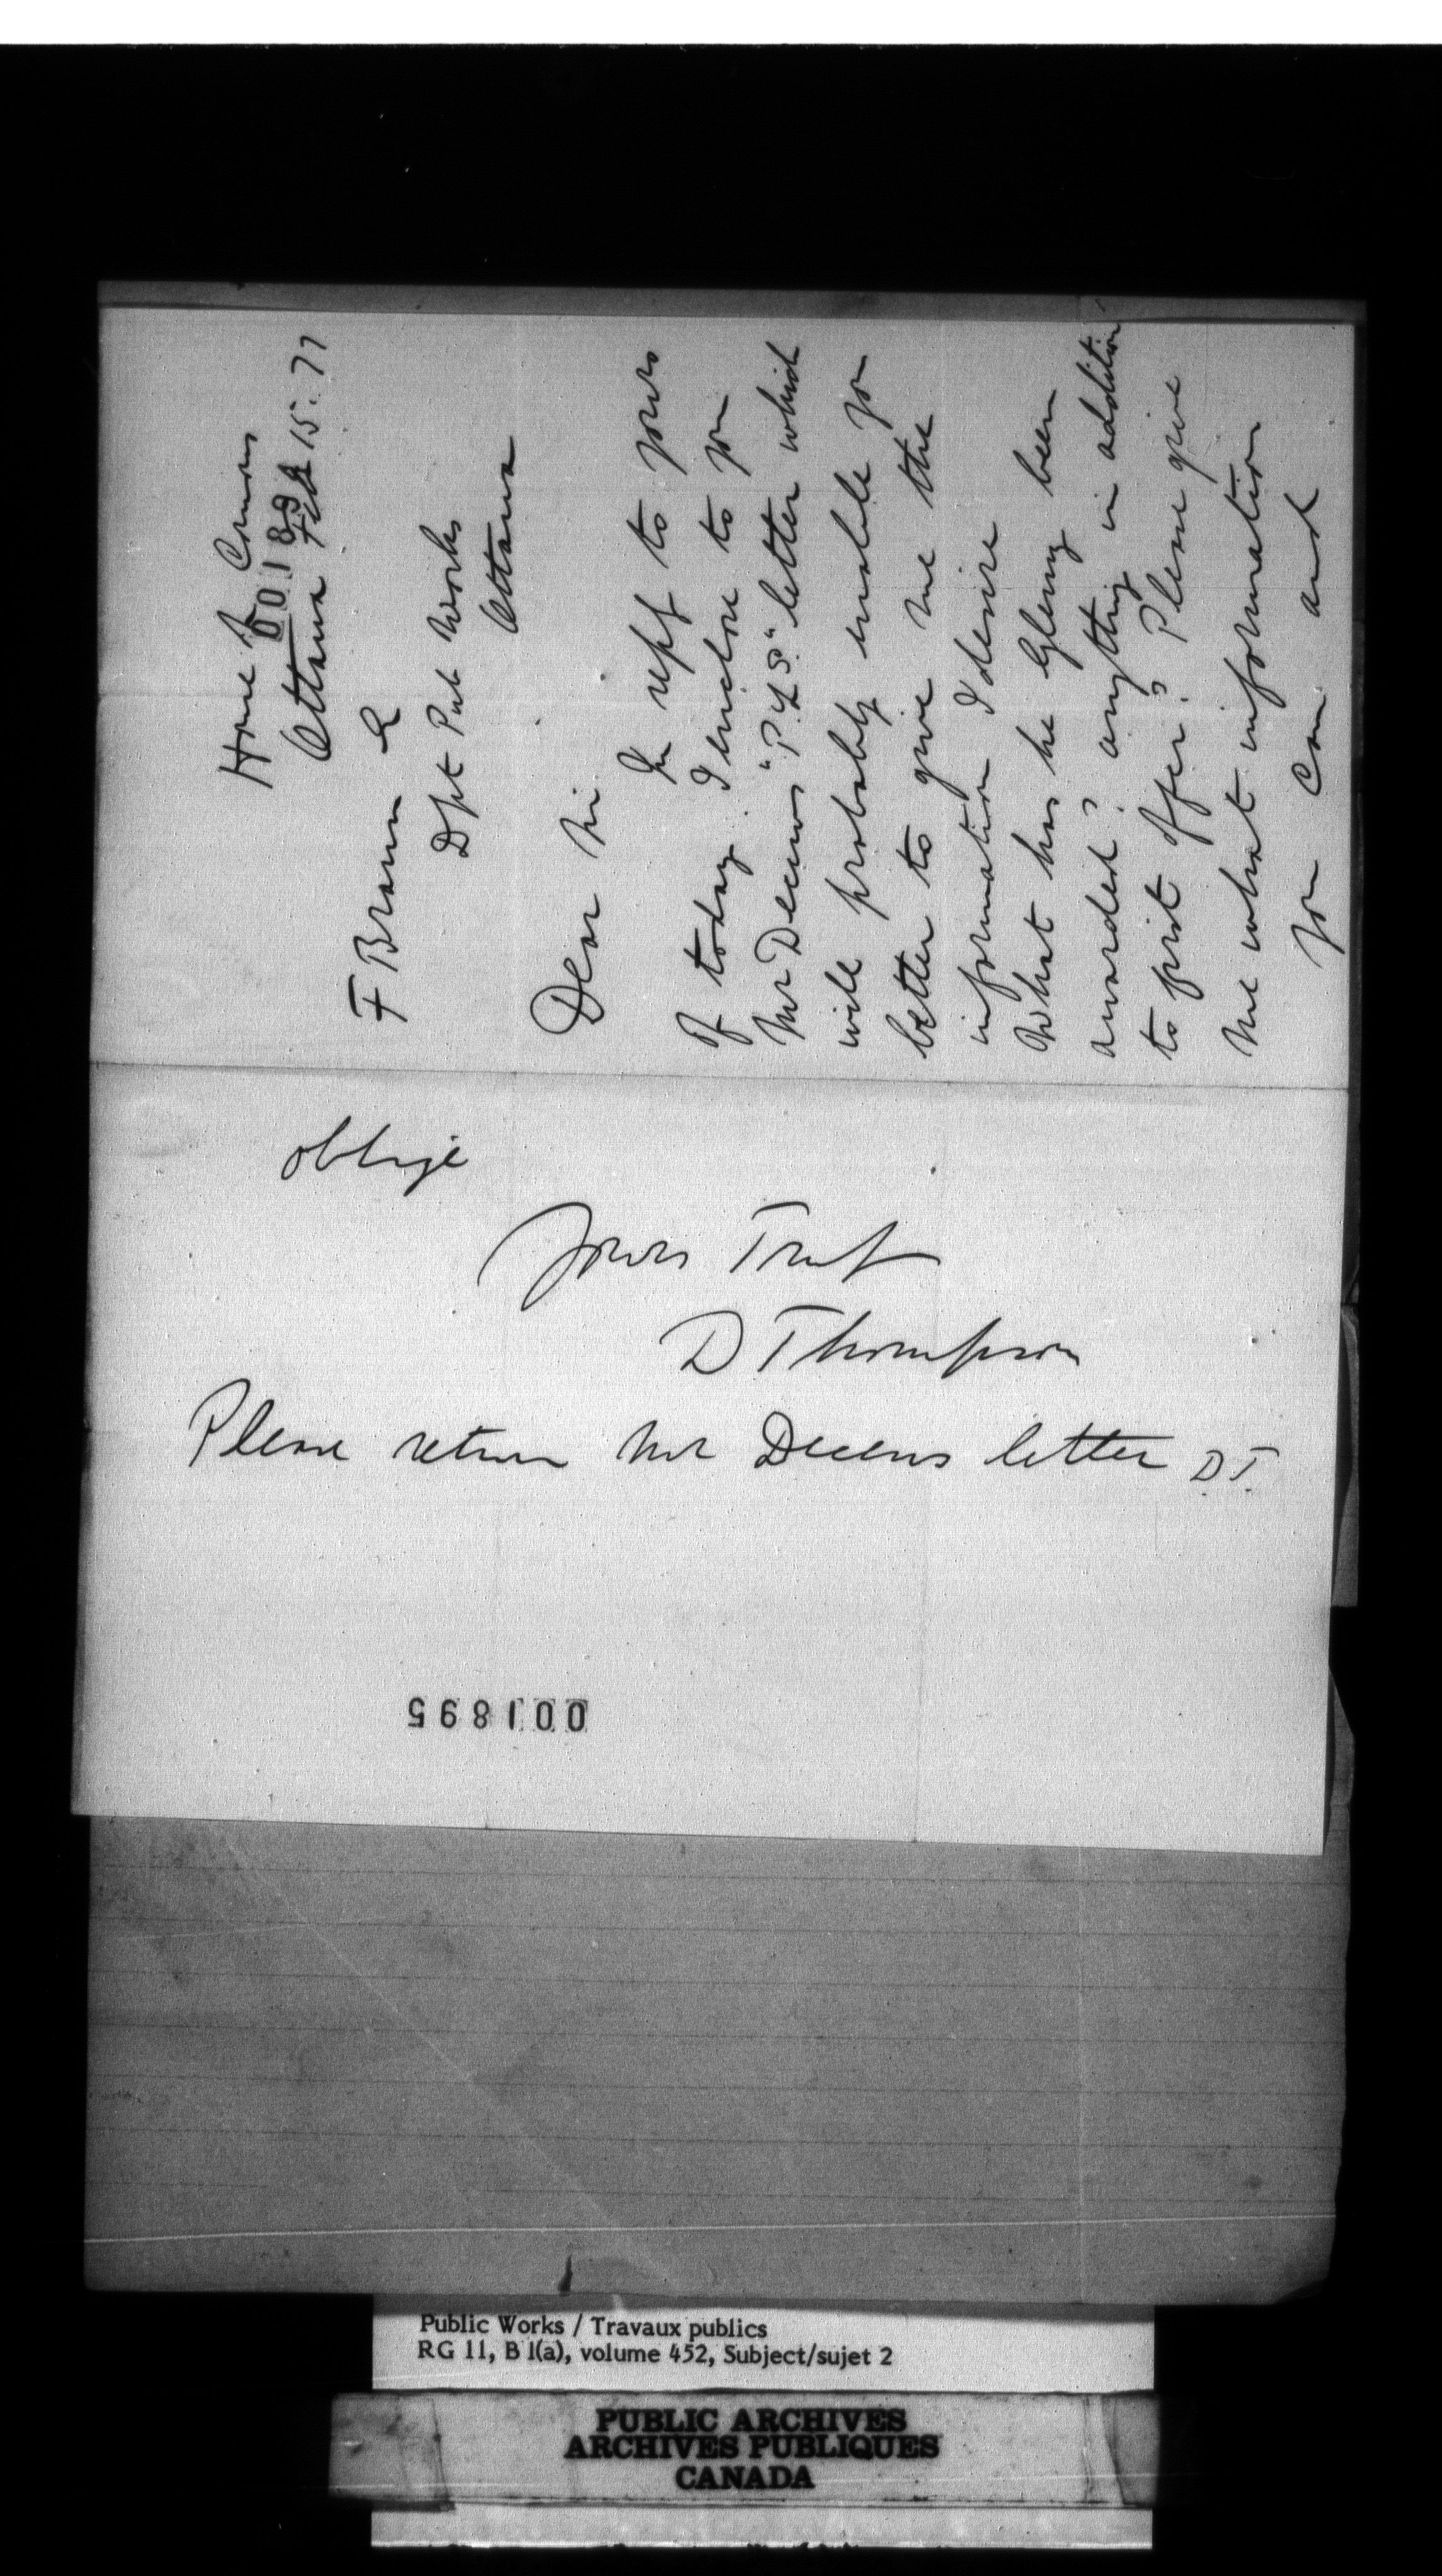 House of Commons
00189
Ottawa Feb 15. 77
F Braun E
Dpt Pub Works
Ottawa
Dear Sir
In reply to yours
of today. I enclose to you
Mr Decews "P.L.S." letter which
will probably enable you
better to give me the
information I desire
What has he Gleny been
awarded? anything in addition
to first offer? Please give
me what information
you can and
oblige
Yours Truly
D Thompson
Please return Mr Decews letter D.T.
001895
Public Works / Travaux publics
RG 11, B 1(a), volume 452, Subject/sujet 2
PUBLIC ARCHIVES
ARCHIVES PUBLIQUES
CANADA